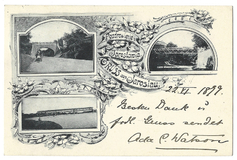 Gruss aus Jaroslau.
22.II.1899.
Besten Dank u
frdl. Gruss sendet
C. Watson